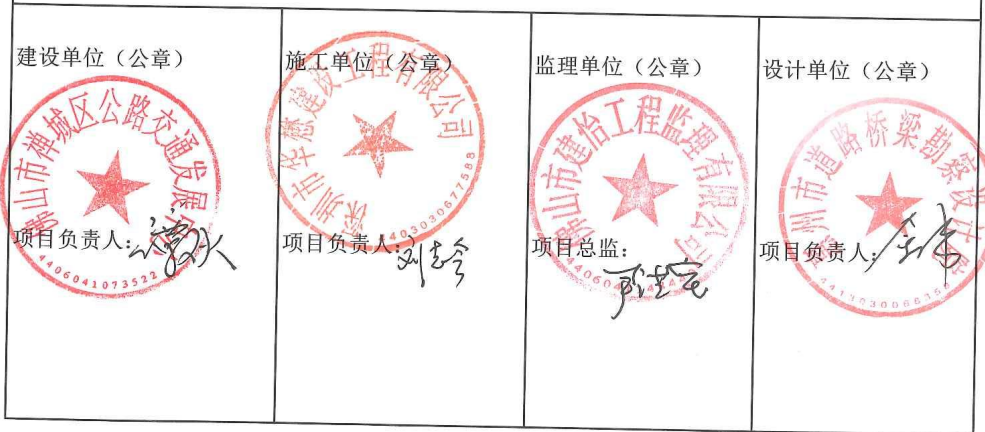 建设单位（公章）
施工单位（公章）
监理单位（公章）
设计单位（公章）
佛山市禅城区公路交通发展
4406041073522
深圳市华懋建设工程有限公司
4403030677588
佛山市建怡工程监理有限公司
州市道路桥梁勘察设计院
项目负责人：
项目负责人：刘志
项目总监：
项目负责人：